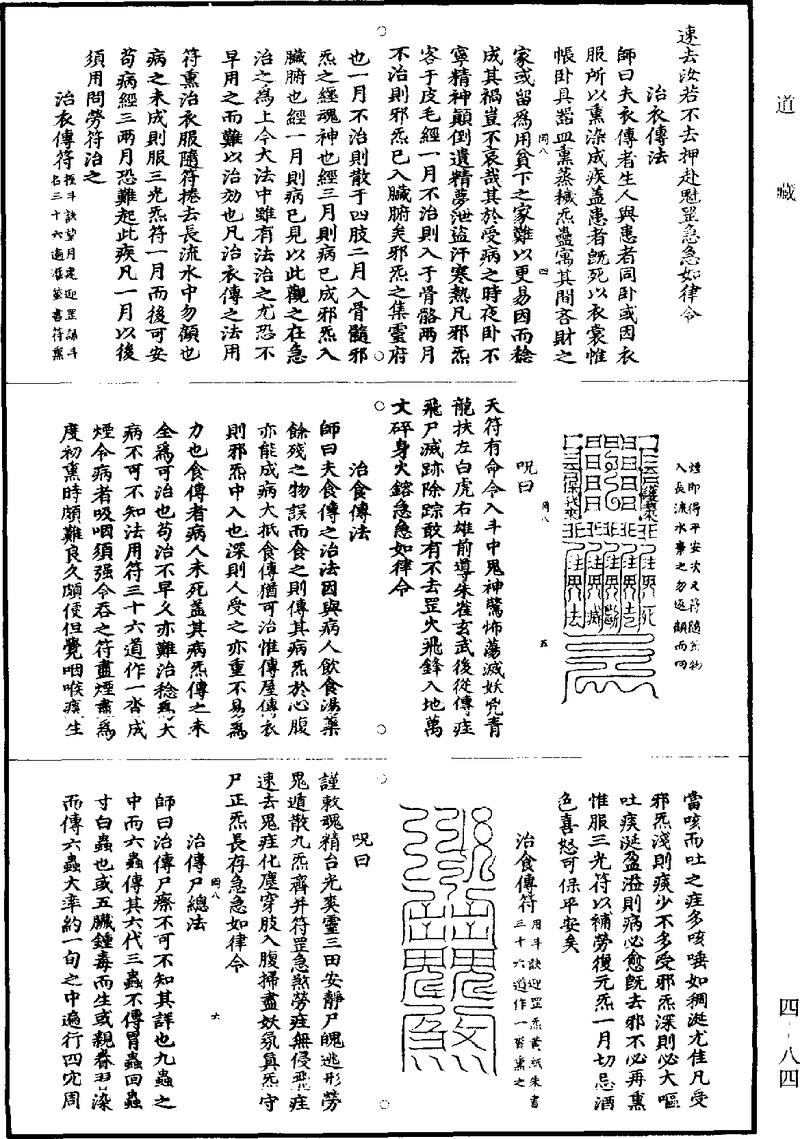 道藏
四-八四
速去汝若不去押赴魁罡急急如律令
治衣傳法
師曰夫衣傳者生人與患者同卧或因衣
服所以熏染成疾蓋患者既死以衣裳惟
帳卧具器皿熏蒸穢炁蟲寓其間吝財之
家或留爲用貧下之家難以更易因而稔
成其禍豈不哀哉其於受病之時夜卧不
寧精神顛倒遺精夢泄盜汗寒熱凡邪炁
客于皮毛經一月不治則入于骨髂兩月
不治則邪炁已入臟腑矣邪炁之集靈府
也一月不治則散于四肢二月入骨髓邪
炁之經魂神也經三月則病已成邪炁入
臟腑也經一月則病已見以此觀之在急
治之爲上今大法中雖有法治之尤恐不
早用之而難以治効也凡治衣傳之法用
符熏治衣服隨符捲去長流水中勿顧也
病之未成則服三光炁符一月而後可安
苟病經三兩月恐難起此疾凡一月以後
須用問勞符治之
治衣傳符
煙即得平安次見符隨衣物
入長流水棄之勿返顧而回
呪曰
天符有命令入斗中鬼神驚怖蕩滅妖兇青
龍扶左白虎右雄前導朱雀玄武後從傳疰
飛尸滅跡除踪敢有不去罡火飛鋒入地萬
丈碎身火鎔急急如律令
治食傳法
師曰夫食傳之治法因與病人飲食湯藥
餘殘之物誤而食之則傳其病炁於心腹
亦能成病大抵食傳猶可治惟傳屋傳衣
則邪炁中入也深則人受之亦重不易爲
力也食傳者病人未死蓋其病炁傳之未
全爲可治也苟治不早久亦難治稔爲大
病不可不知法用符三十六道作一沓成
煙令病者吸咽須强令吞之符盡煙盡爲
度初熏時頗難良久頗便但覺咽喉痰生
當咳而吐之疰多咳唾如稠涎尤佳凡受
邪炁淺則痰少不多受邪炁深則必大嘔
吐痰涎盈溢則病必愈既去邪不必再熏
惟服三光符以補勞復元炁一月切忌酒
色喜怒可保平安矣
治食傳符
用斗訣迎罡炁黄紙朱書
三十六道作一沓熏之
呪曰
謹敕魂精台光爽靈三田安靜尸魄逃形勞
鬼遁散九炁齊并符罡急煞勞疰無侵飛疰
速去鬼疰化塵穿肢入腹掃盡妖氛真炁守
尸正炁長存急急如律令
治傳尸總法
師曰治傳尸瘵不可不知其詳也九蟲之
中而六蟲傳其六代三蟲不傳胃蟲回蟲
寸白蟲也或五臟鍾毒而生或親眷習染
而傳六蟲大率約一旬之中遍行四穴周